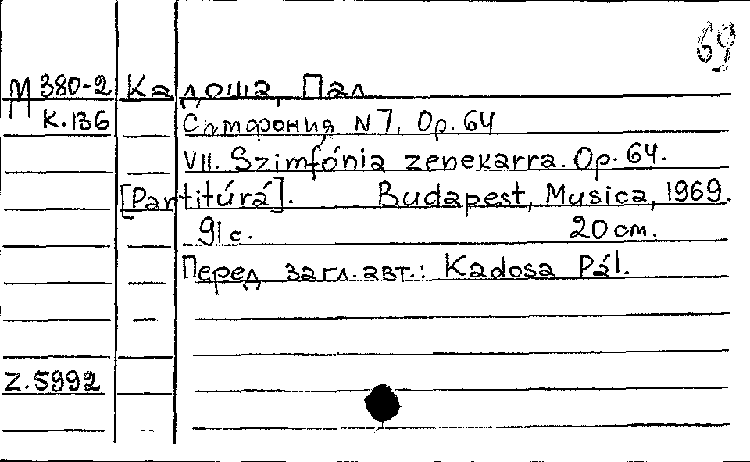 69
М 380-2 Кадоша, Пал
К.136 Симфония N 7, Op. 64
VII. Szimfónia zenekarra. Op. 64.
[Partitúrá]. Budapest, Musica, 1969.
91 с. 20 cm.
Перед загл. авт.: Kadosa Pál.
Z.5992